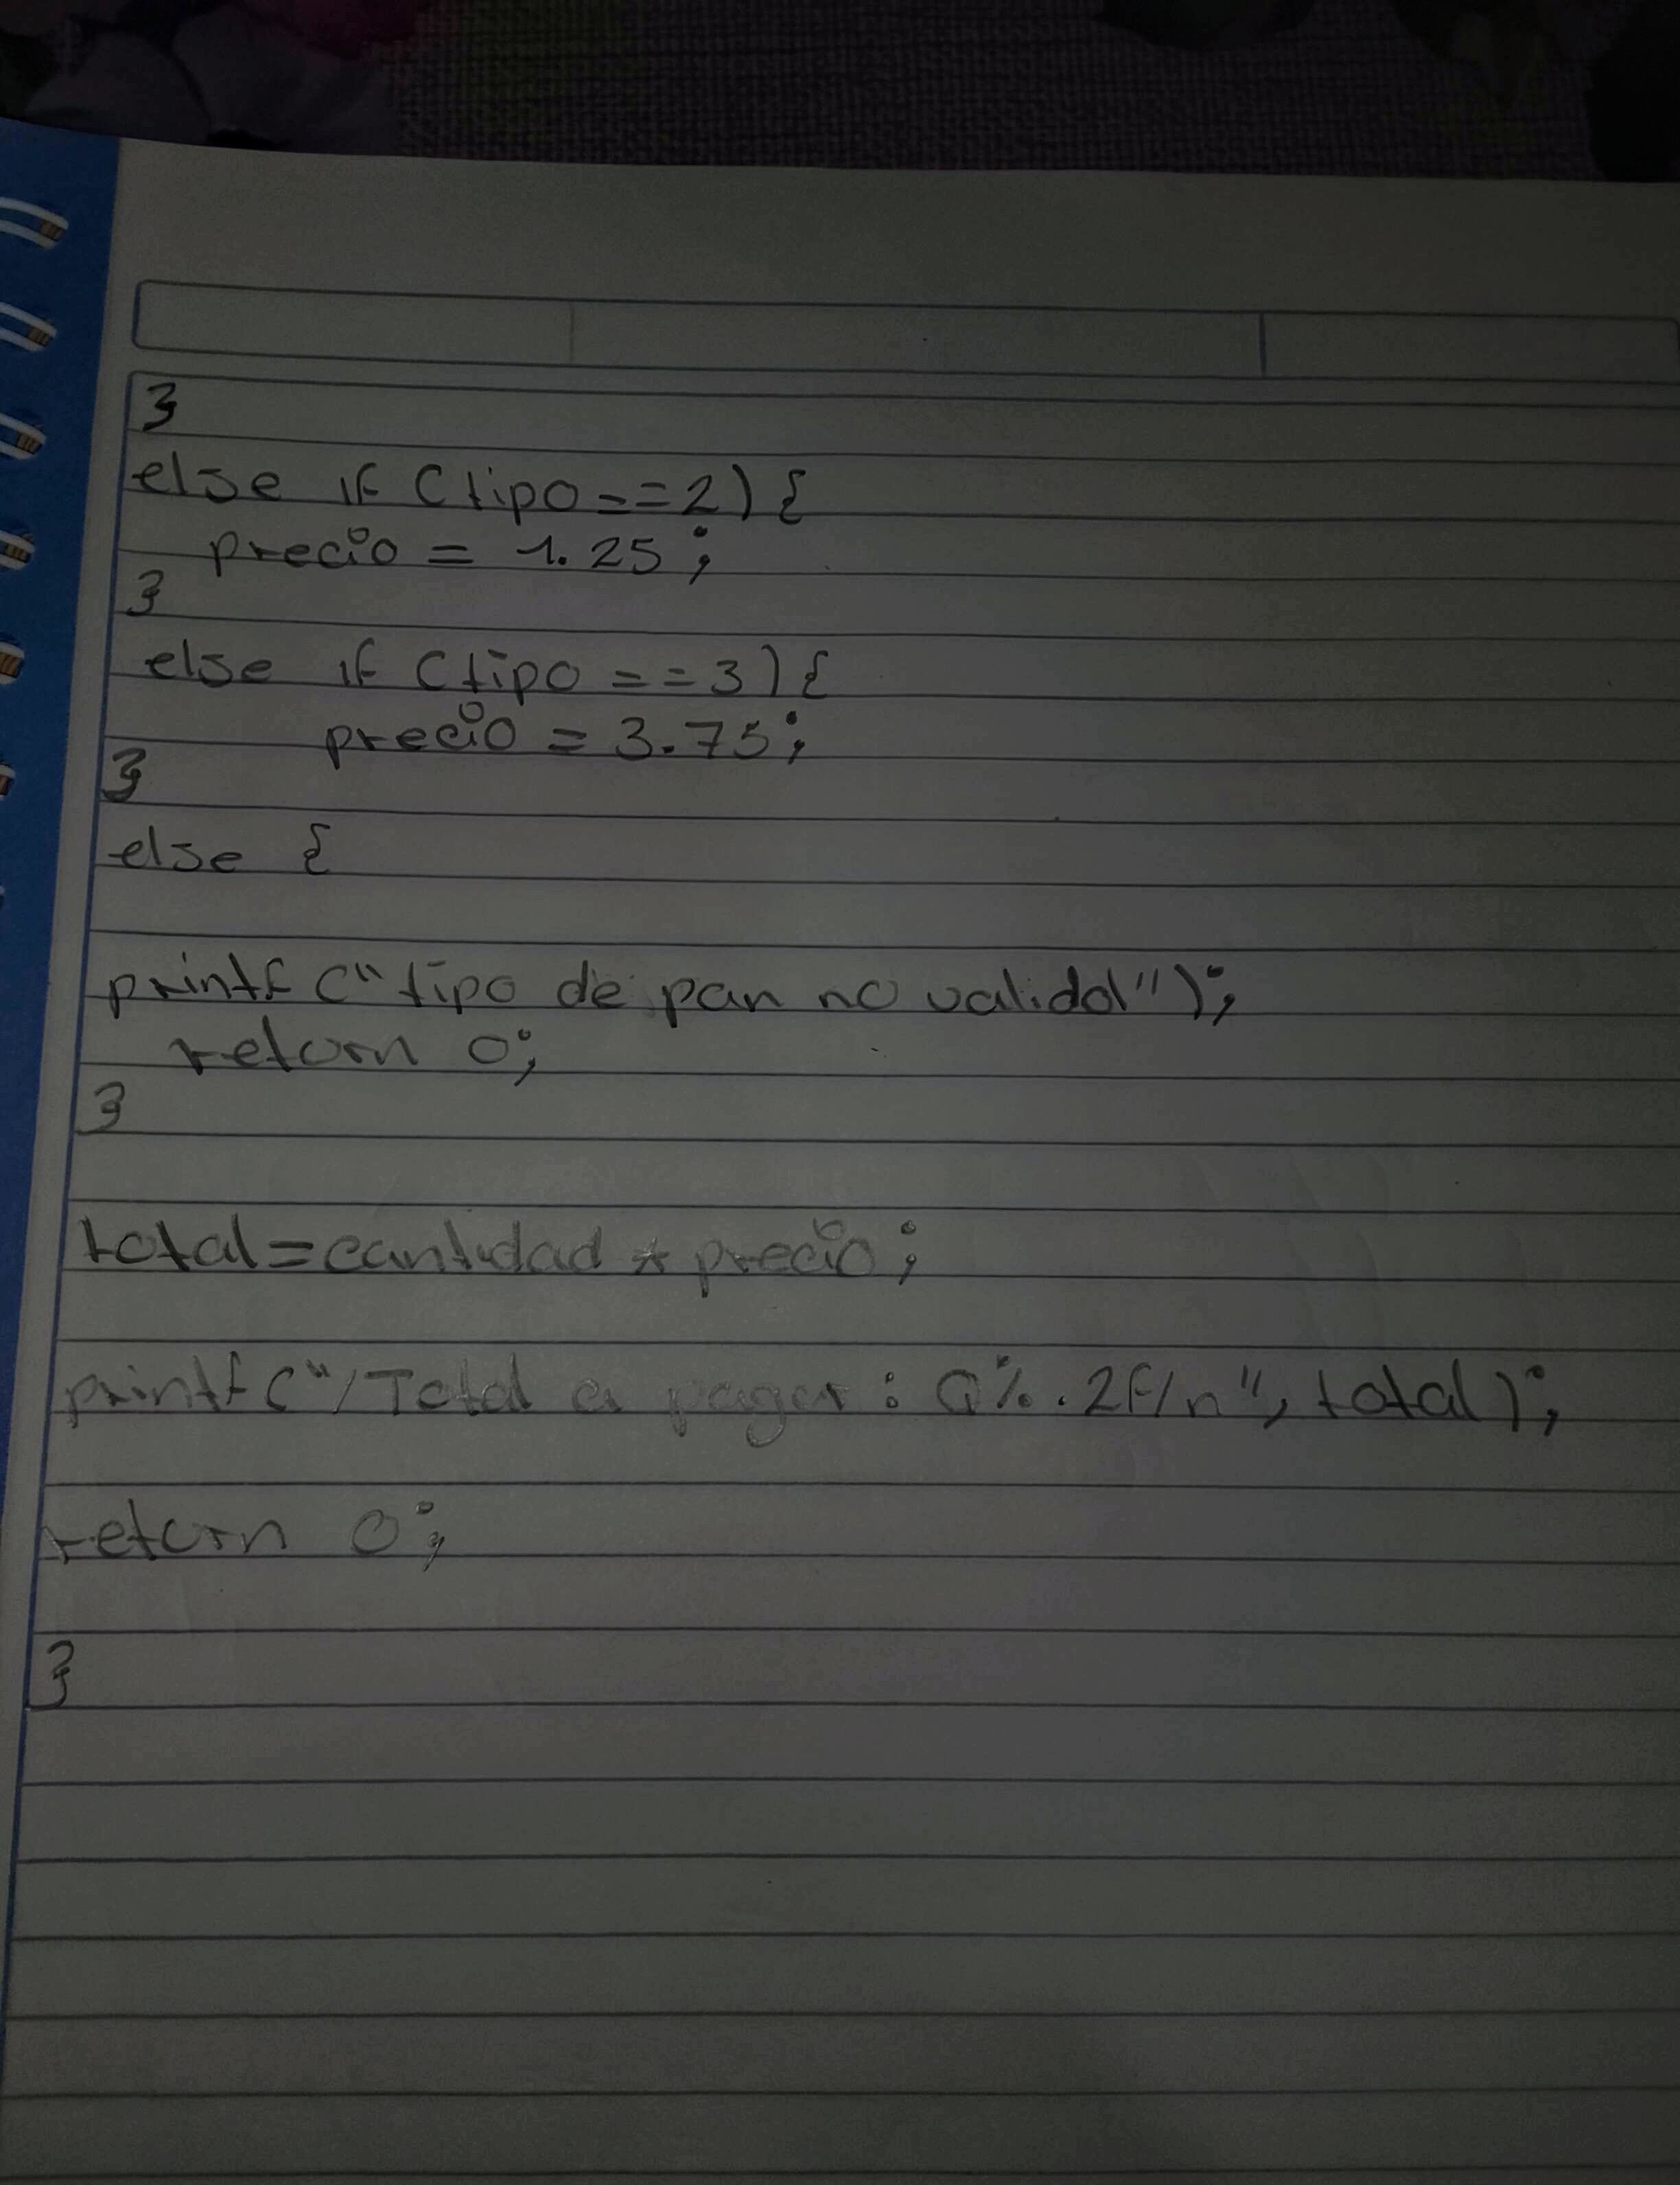 }
else if (tipo == 2) {
precio = 1.25;
}
else if (tipo == 3) {
precio = 3.75;
}
else {
printf ("tipo de pan no validol");
return 0;
}
total = cantidad * precio;
printf ("/Total a pagar: Q%.2f/n", total);
return 0;
}